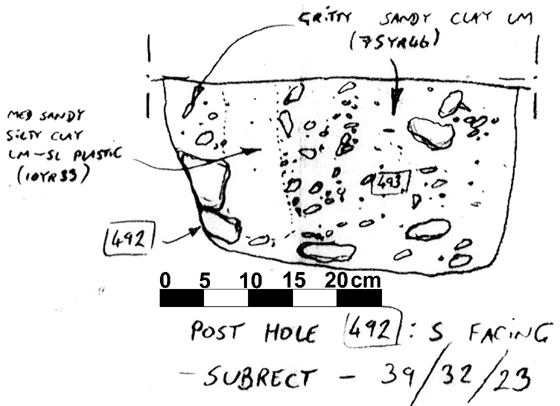 GRITTY SANDY CLAY LM
(75YR46)
MED SANDY
SILTY CLAY
LM-SL PLASTIC
(10YR33)
493
492
0 5 10 15 20cm
POST HOLE 492 : S FACING
- SUBRECT - 39/32/23